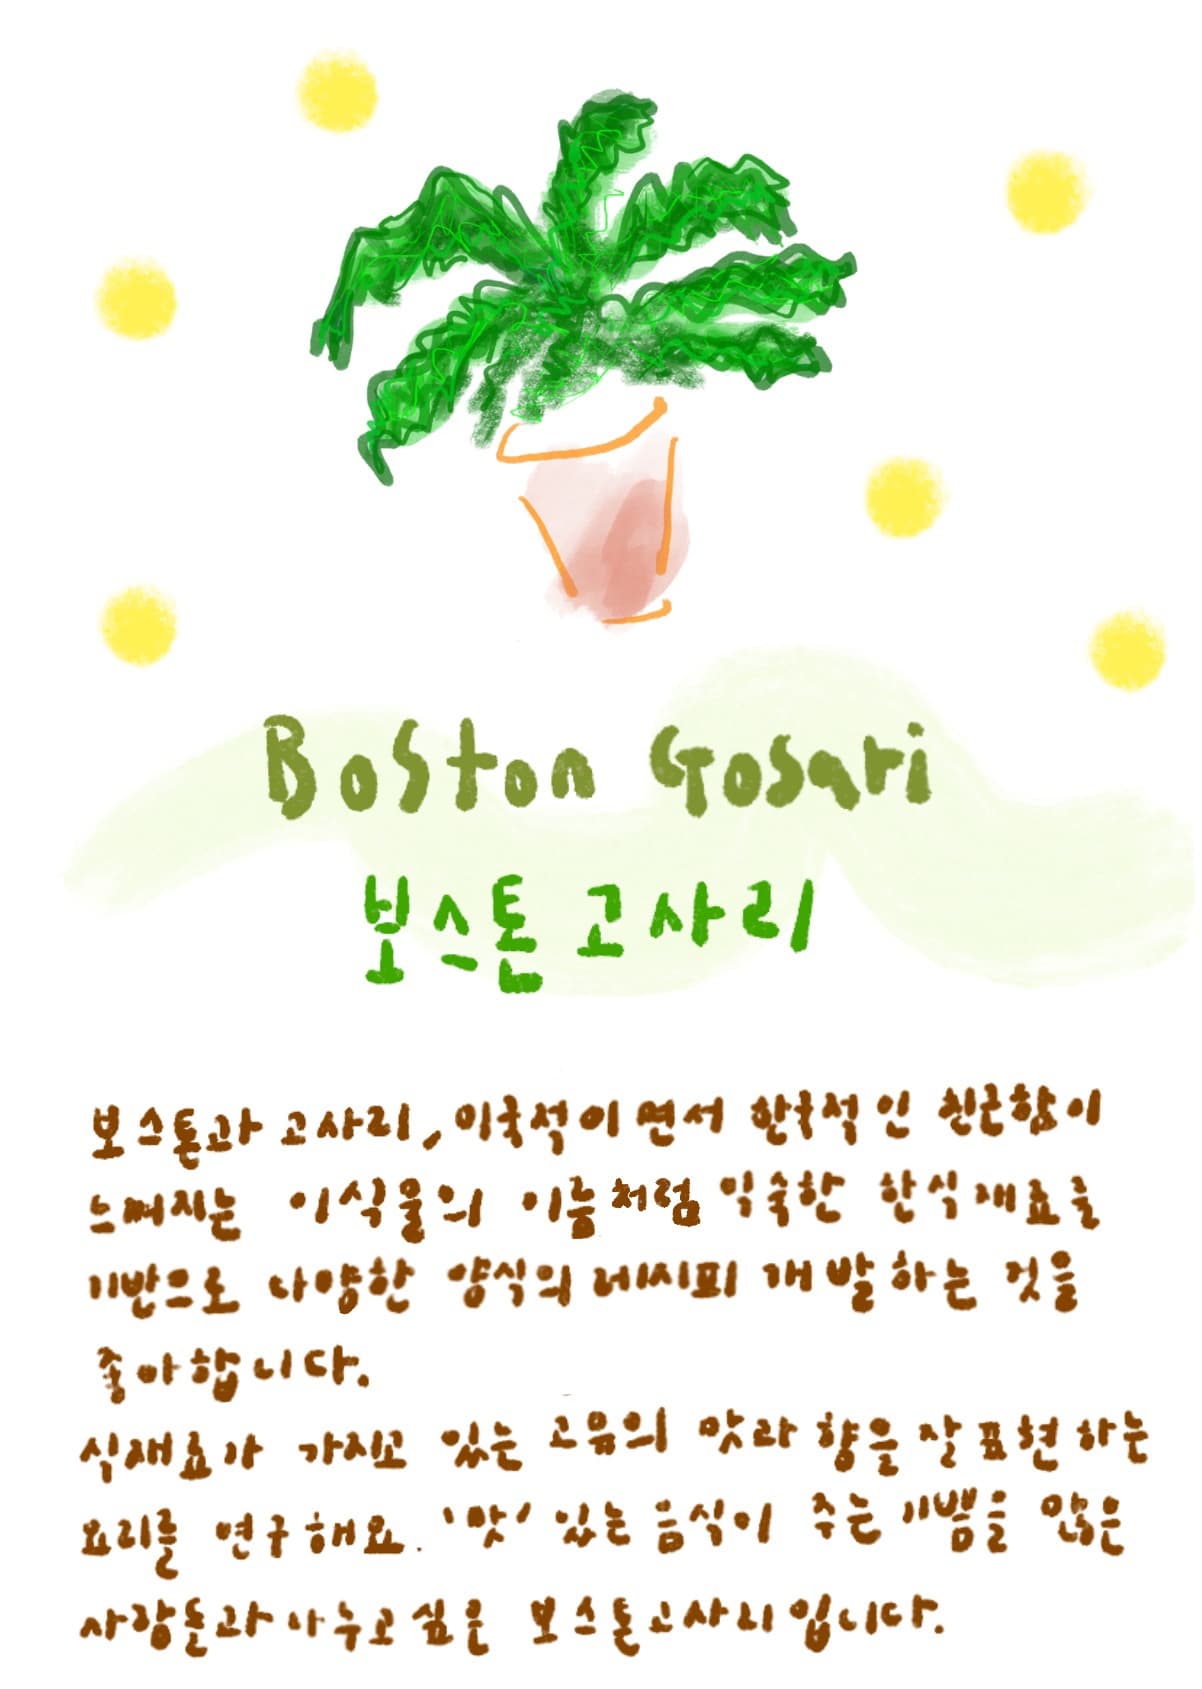 Boston Gosari
보스톤 고사리
보스톤과 고사리, 미국적이면서 한국적인 친근함이
느껴지는 이식물의 이름처럼 익숙한 한식재료를
기반으로 다양한 양식의 레시피 개발하는 것을
좋아합니다.
식재료가 가지고 있는 고유의 맛과 향을 잘 표현하는
요리를 연구해요. '맛' 있는 음식이 주는 기쁨을 많은
사람들과 나누고 싶은 보스톤고사리입니다.